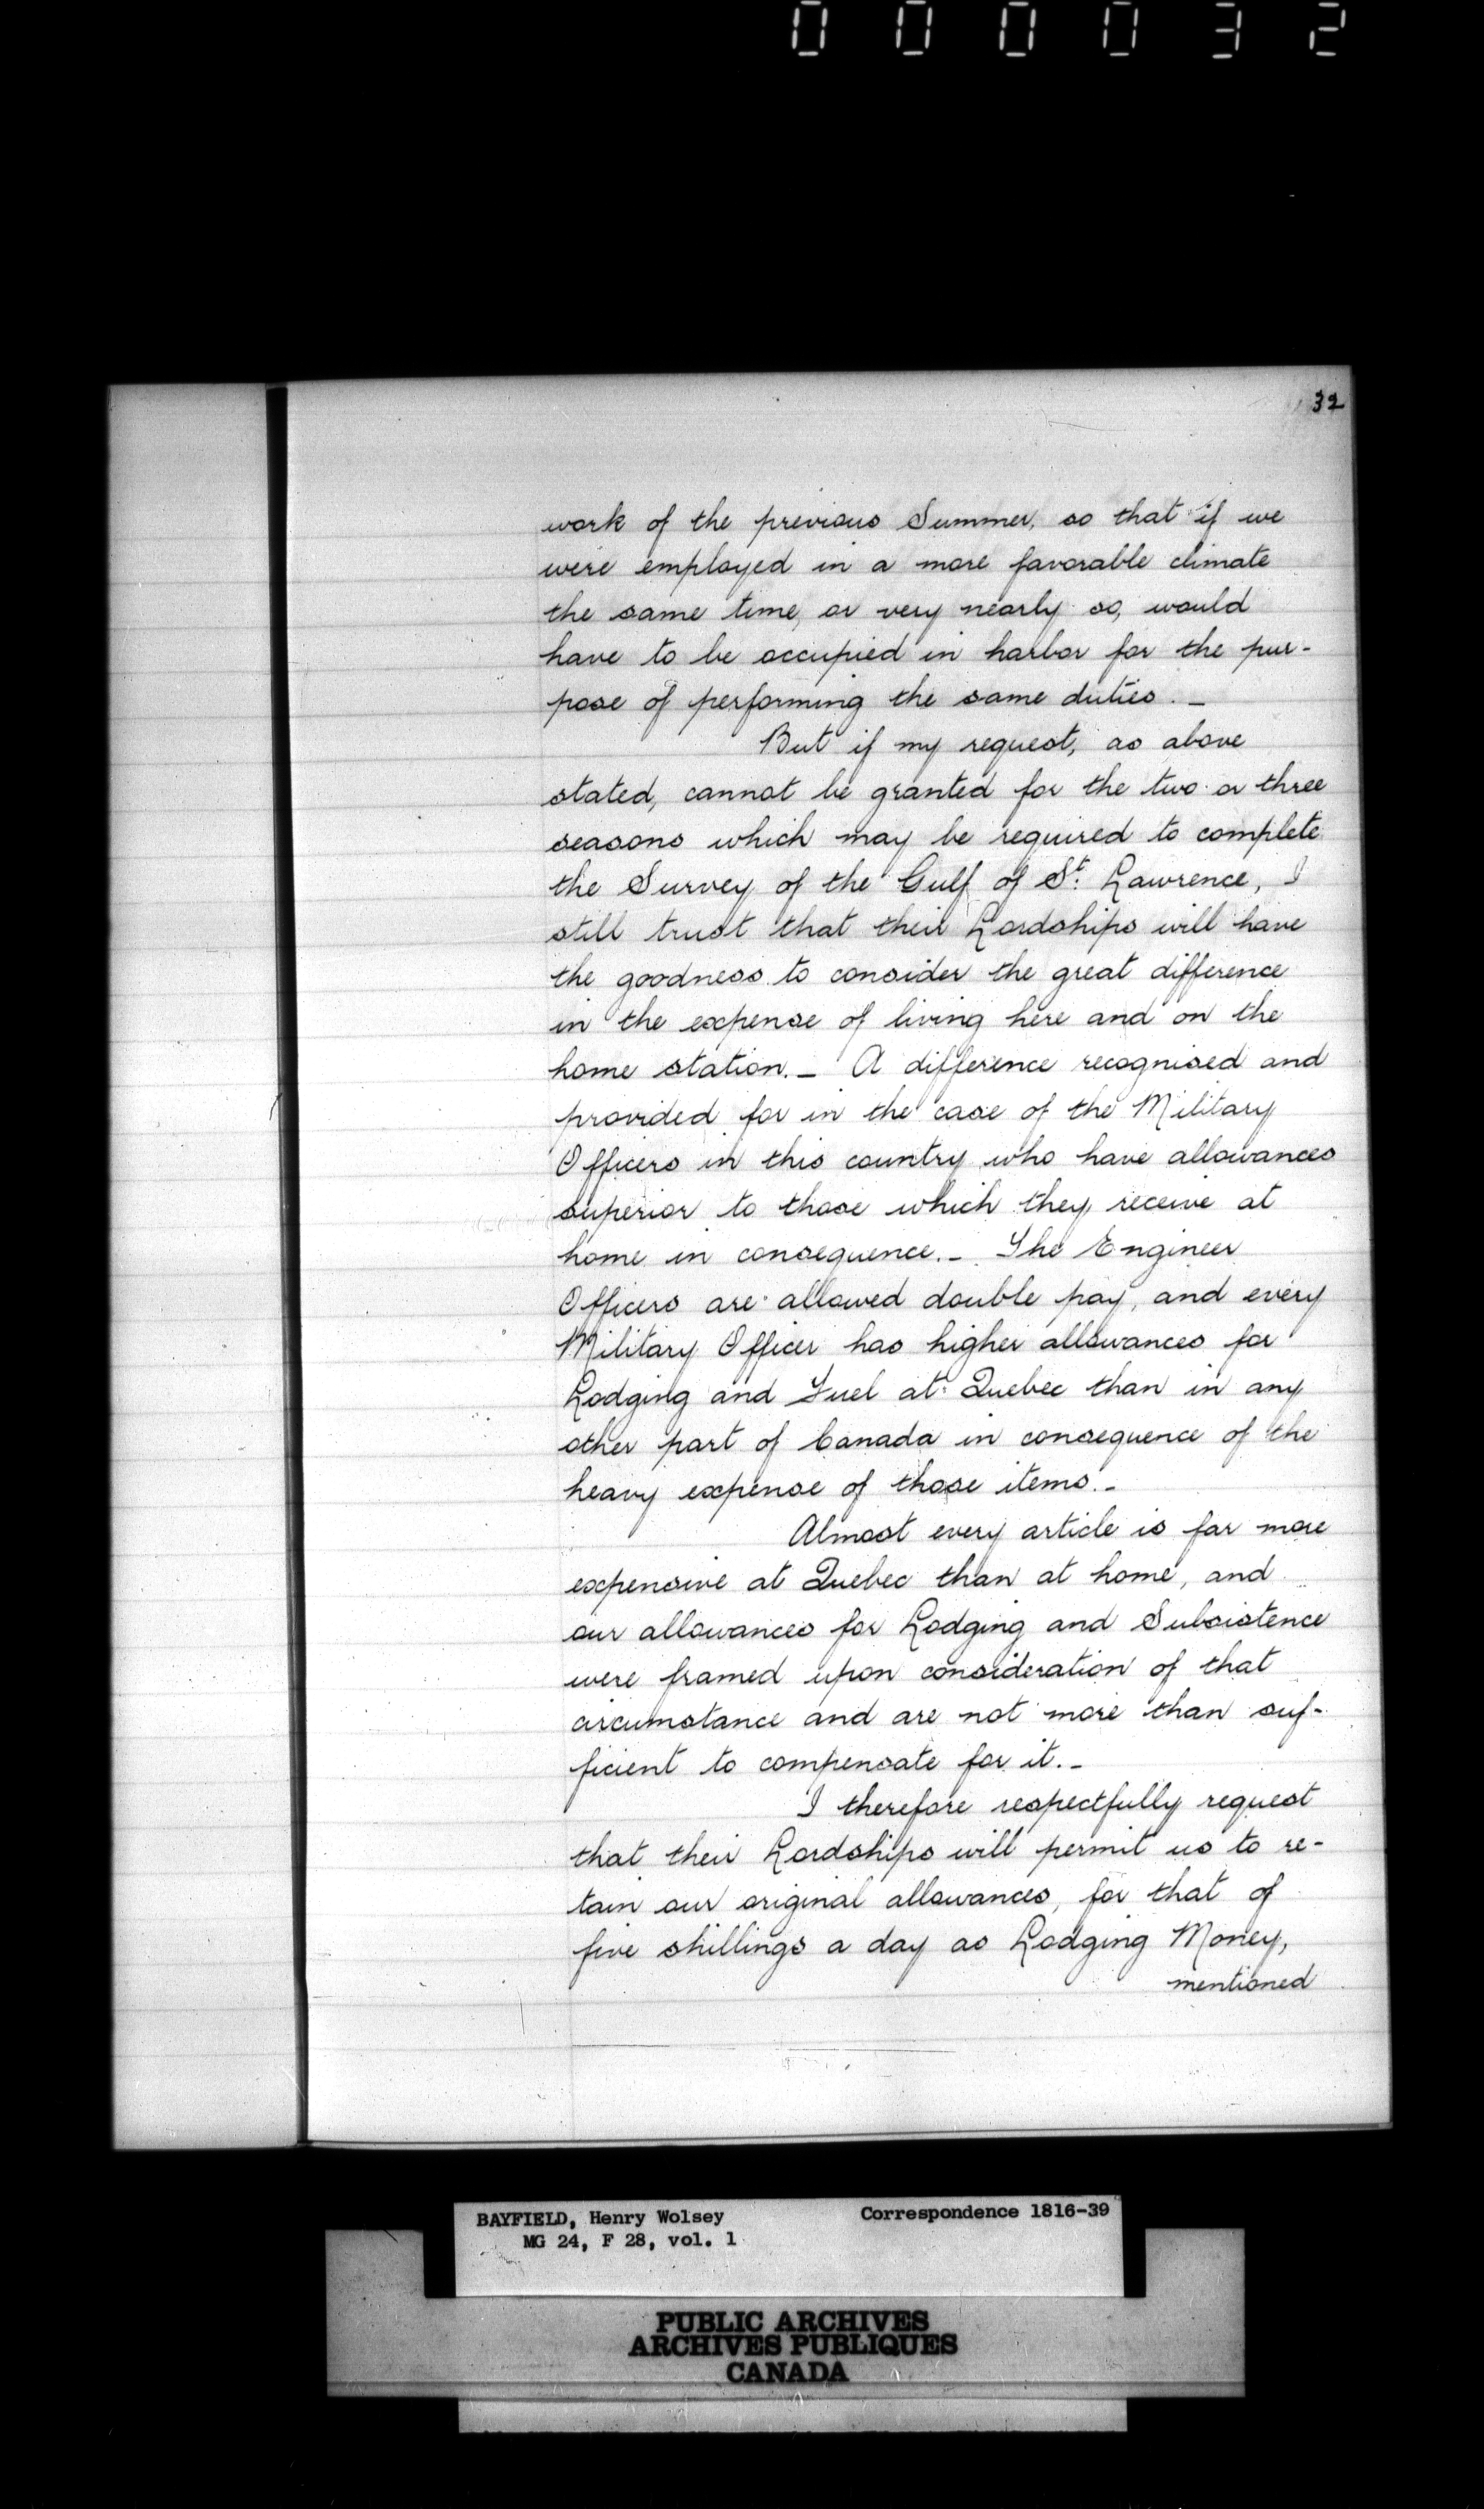 000032
32
work of the previous Summer, so that if we
were employed in a more favorable climate
the same time, or very nearly so, would
have to be occupied in harbor for the pur-
pose of performing the same duties. _
But if my request, as above
stated, cannot be granted for the two or three
seasons which may be required to complete
the Survey of the Gulf of St. Lawrence, I
still trust that their Lordships will have
the goodness to consider the great difference
in the expense of living here and on the
home station. _ A difference recognised and
provided for in the case of the Military
Officers in this country who have allowances
superior to those which they receive at
home in consequence. _ The Engineer
Officers are allowed double pay, and every
Military Officer has higher allowances for
Lodging and Fuel at Quebec than in any
other part of Canada in consequence of the
heavy expense of those items. _
Almost every article is far more
expensive at Quebec than at home, and
our allowances for Lodging and Subsistence
were framed upon consideration of that
circumstance and are not more than suf-
ficient to compensate for it. _
I therefore respectfully request
that their Lordships will permit us to re-
tain our original allowances, for that of
five shillings a day as Lodging Money,
mentioned
BAYFIELD, Henry Wolsey Correspondence 1816-39
MG 24, F 28, vol. 1
PUBLIC ARCHIVES
ARCHIVES PUBLIQUES
CANADA